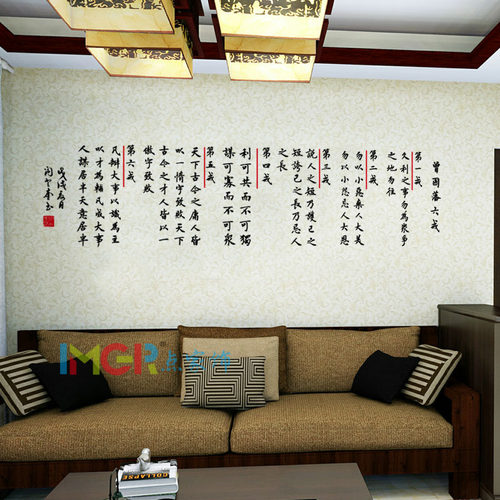 曾國藩六戒
第一戒
久利之事勿為眾爭
之地勿往
第二戒
勿以小惡棄人大美
勿以小怨忘人大恩
第三戒
說人之短乃護己之
短誇己之長乃忌人
之長
第四戒
利可共而不可獨
謀可寡而不可眾
第五戒
天下古今之庸人皆
以一惰字致敗天下
古今之才人皆以一
傲字致敗
第六戒
凡辦大事以識為主
以才為輔凡成大事
人謀居半天意居半
IMGR
COLLAPSE